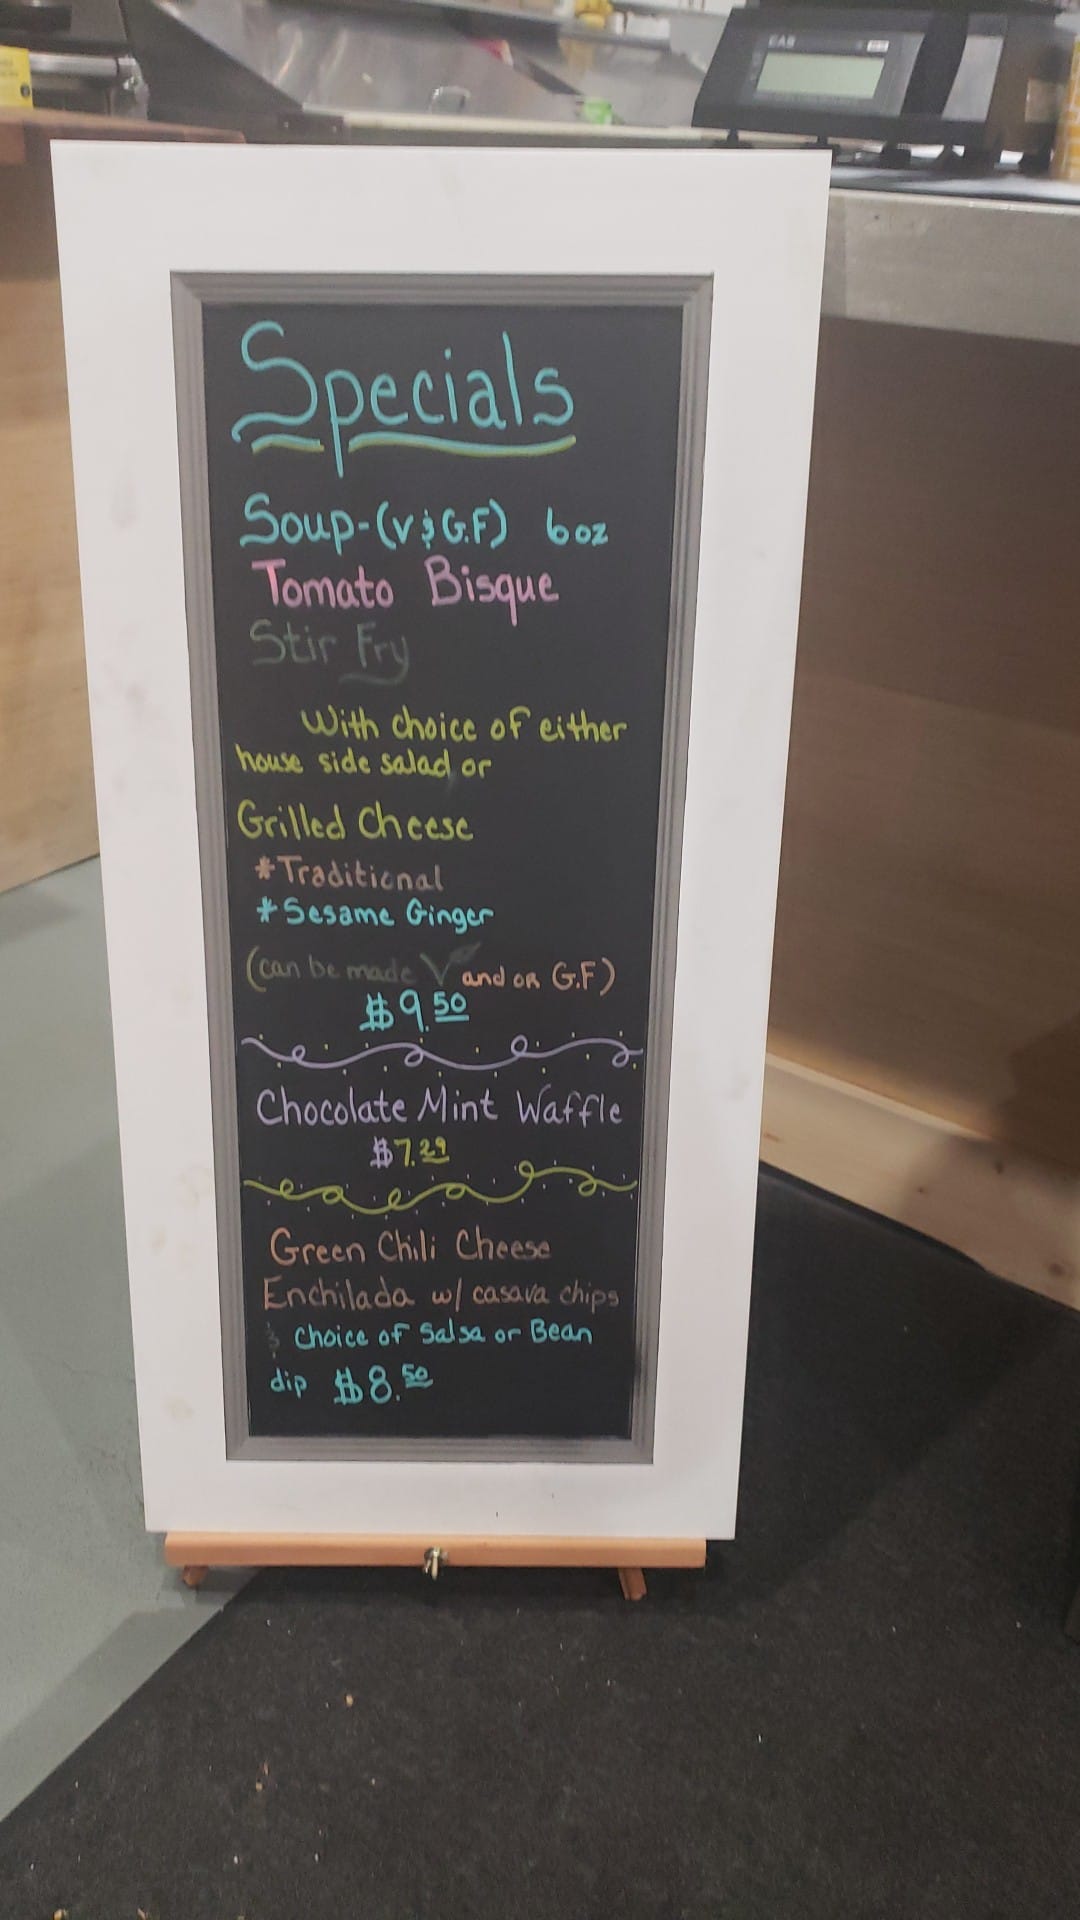 CAS
Specials
Soup-(V & G.F) 6oz
Tomato Bisque
Stir Fry
With choice of either
house side salad or
Grilled Cheese
*Traditional
*Sesame Ginger
(can be made V and or G.F)
$9.50
Chocolate Mint Waffle
$7.29
Green Chili Cheese
Enchilada w/ casava chips
& choice of Salsa or Bean
dip $8.50